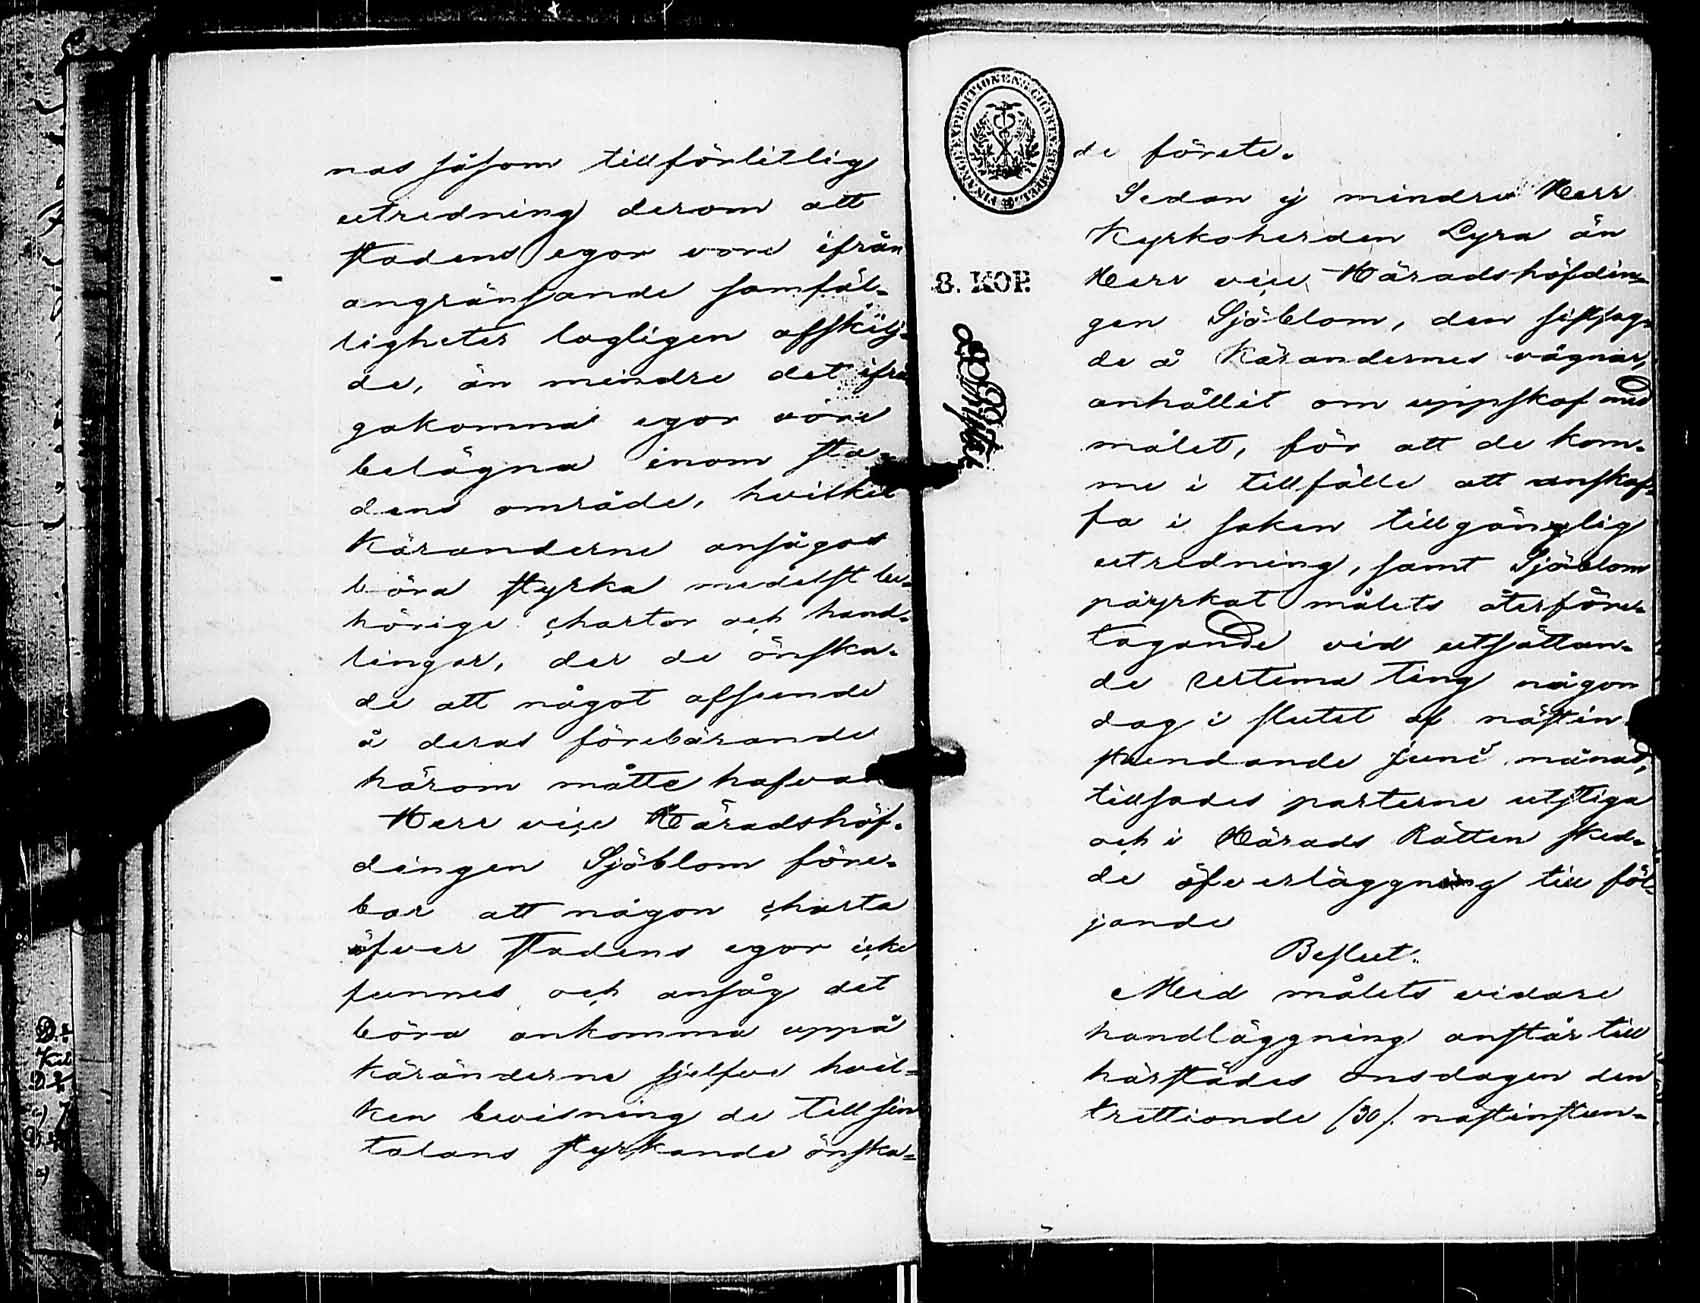 nas såsom tillförlitlig
utredning derom att
stadens egor vore ifrån
angränsande samfäl-
ligheter lagligen afskilj-
de, än mindre det ifrå
gakomna egor vore
belägna inom sta-
dens område, hvilket
käranderne ansågos
böra styrka medelst be-
hörige chartor och hand-
lingar, der de önska-
de att något afseende
å deras förebärande
härom måtte hafvas
Herr vice Häradshöf-
dingen Sjöblom före-
bar att någon charta
öfver stadens egor icke
funnes och ansåg det
böra ankomma uppå
käranderne sjelfve hvil-
ken bevisning de till sin
talans styrkande önska-
FINANCE EXPEDITIONENS CHARTÆ STEMPEL
8. KOP.
de förete.
Sedan ej mindre Herr
Kyrkoherden Lyra än
Herr vice Häradshöfdin-
gen Sjöblom, den sistsag-
de å Kärandernes vägnar,
anhållit om uppskof med
målet, för att de kom-
me i tillfälle att anskaf-
fa i saken tillgänglig
utredning, samt Sjöblom
påyrkat målets återföre-
tagande vid utsättan-
de Urtima Ting någon
dag i slutet af nästin-
stundande Juni månad,
tillsades parterne utstiga
och i Härads Rätten sked-
de öfverläggning till föl-
jande
Beslut:
Med målets vidare
handläggning anstår till
härstädes onsdagen den
trettionde /30/. nästinstun-